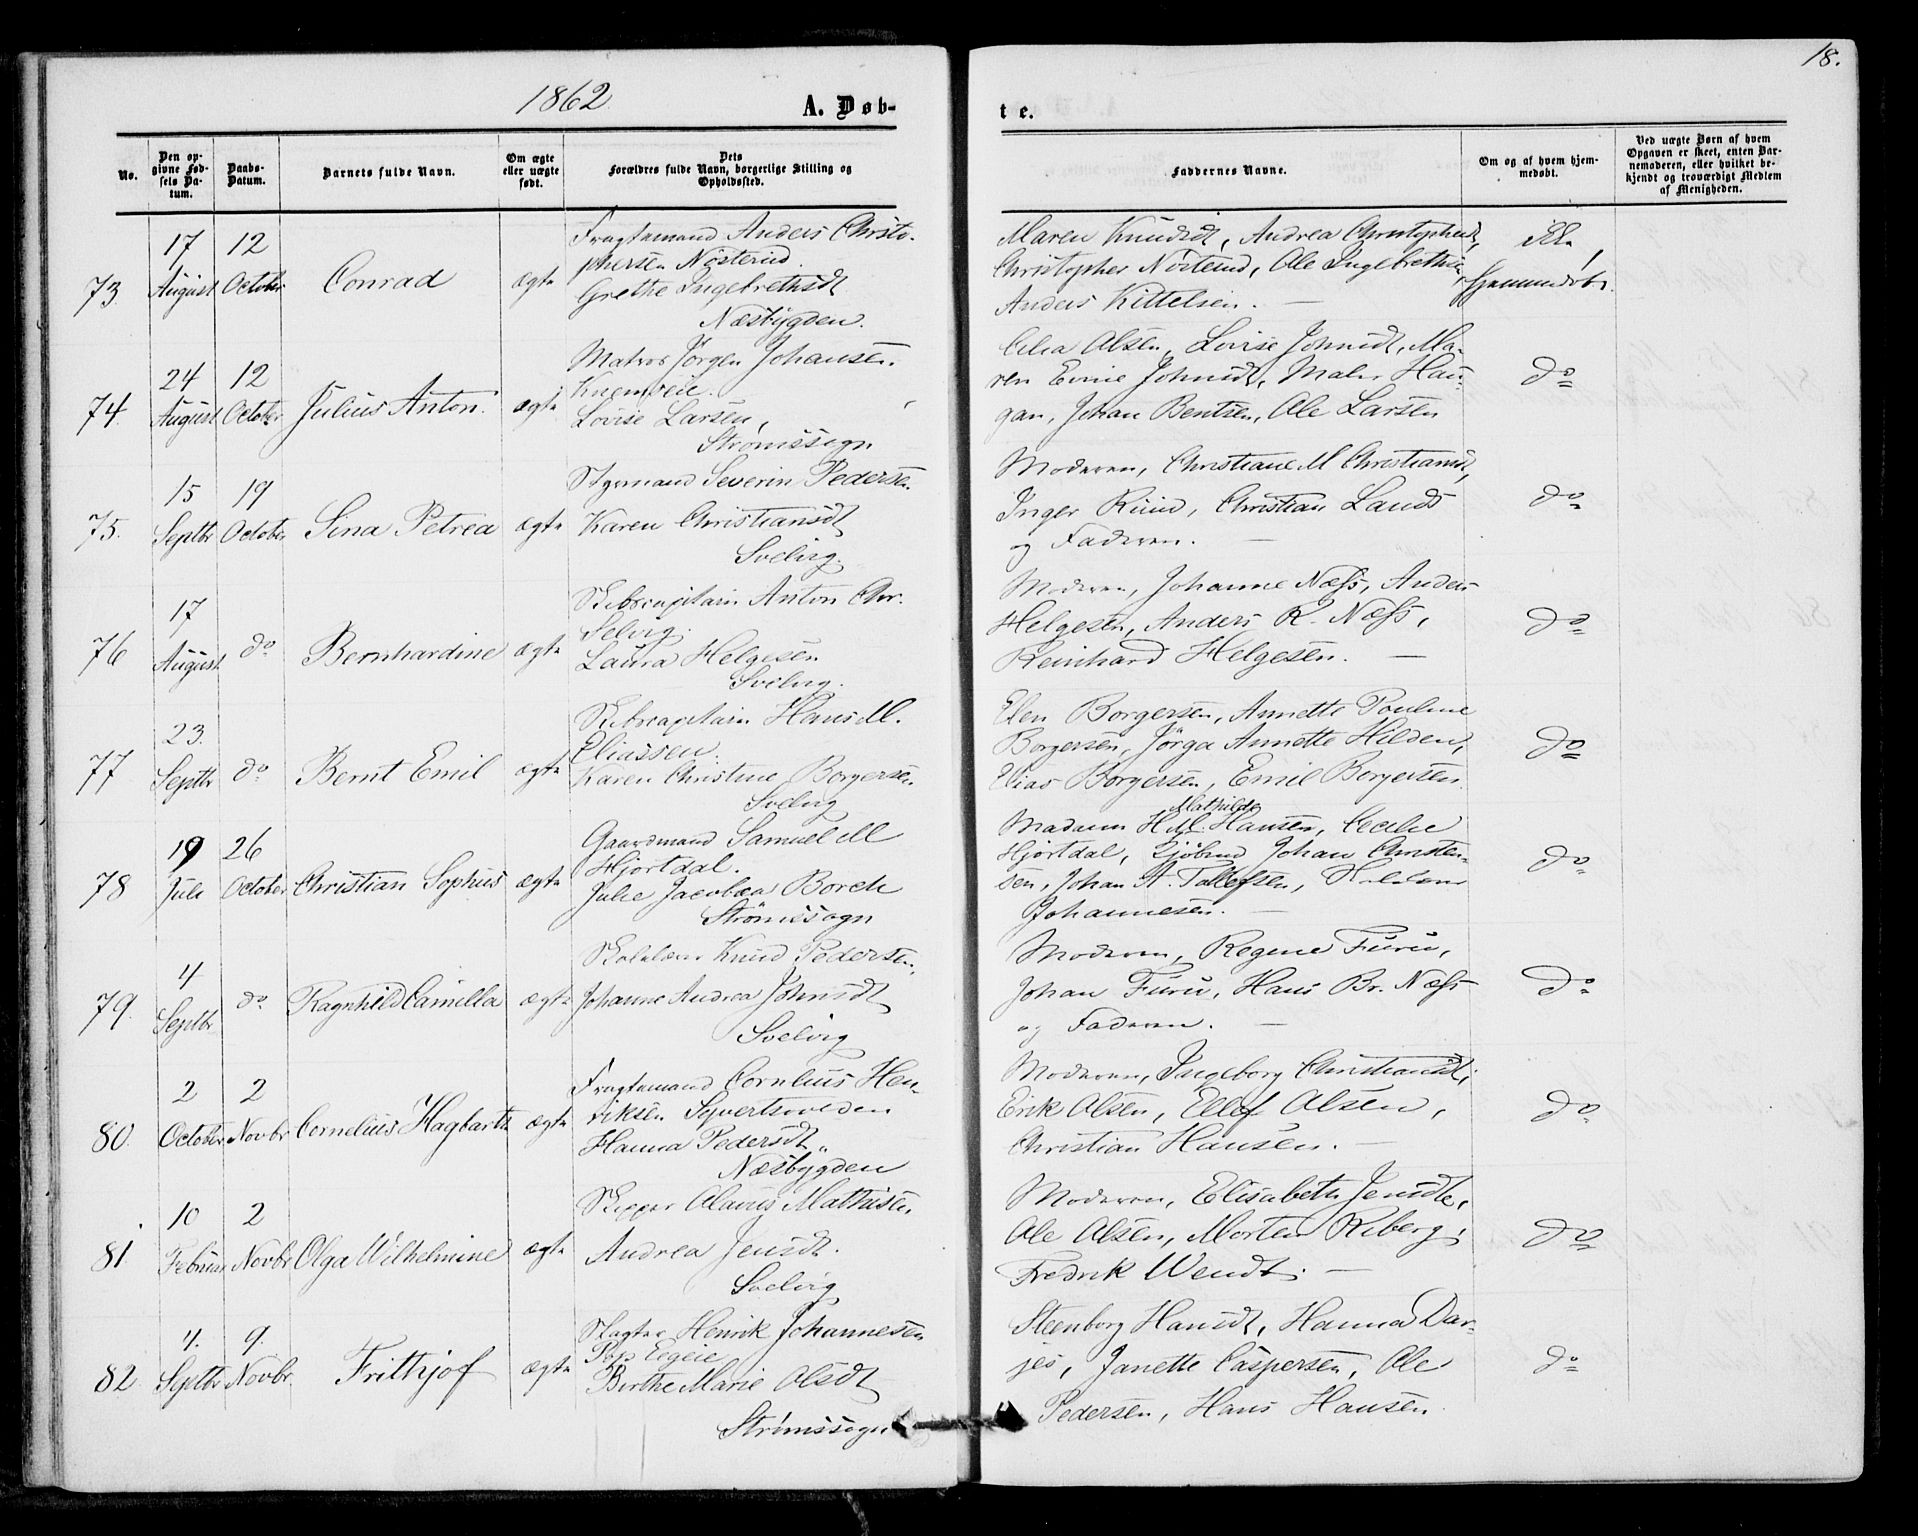 18.
1862 A. Døb-
t e.
No.
Den op-
givne Fød-
sels Da-
tum.
Daabs-
Datum.
Barnets fulde Navn.
Om ægte
eller uægte
født.
Dets
Forældres fulde Navn, borgerlige Stilling og
Opholdssted.
Faddernes Navne.
Om og af hvem hjem-
medøbt.
Ved uægte Børn af hvem
Opgaven er skeet, enten Bar-
nemoderen, eller hvilket be-
kjendt og troværdigt Medlem
af Menigheden.
73
17
August
12
October
Conrad
ægte
Fragtemand Anders Christo-
phersen Nösterud.
Grethe Ingebrethsdt
Næsbygden.
Maren Knudsdt, Andrea Christophersdt,
Christopher Nösterud, Ole Ingebrethsen,
Anders Kittelsen. —
ikke
hjemmedøbt.
74.
24
August
12
October
Julius Anton.
ægte
Matros Jørgen Johansen.
Knemveie.
Lovise Larsen,
Strømssogn
Olsen, Lovise Johnsdt, Ma-
ren Johnsdt, Maler Hau-
gan, Johan Bentsen, Ole Larsen
do
75.
15
Septbr
19
October
Sina Petrea
ægte
Styrmand Severin Pedersen.
Karen Christiansdt
Svelvig.
Moderen, Christiane M Christiansdt,
Inger Ruud, Christian Lands
og Faderen. —
do
76
17
August
do
Bernhardine
ægte
Skibscapitain Anton Chr.
Selvig.
Laura Helgesen
Svelvig.
Moderen, Johanne Næss, Anders
Helgesen, Anders R. Næss,
Reinhard Helgesen. —
do
77
23.
Septbr
do
Bernt Emil
ægte
Skibscapitain Hans M.
Eliassen.
Karen Christine Borgersen.
Svelvig
Elen Borgersen, Annette Pouline
Borgersen, Jörga Annette Hilden,
Elias Borgersen, Emil Borgersen.
do
78
19
Juli
26
October
Christian Sophus
ægte
Gaardmand Samuel M
Hjortdal.
Julie Jacobea Borch
Strömssogn
Mathilde
Madam H. M. Hansen, Cecilie
Hjortdal, Johan Christen-
sen, Johan A. Tollefsen,
Johannesen. —
do
79.
4
Septbr
do
Ragnhild Camilla
ægte
Skolelærer Knud Pedersen,
Johanne Andrea Johnsdt
Svelvig
Moderen, Regene Furu,
Johan Furu, Hans Br. Næss
og Faderen. —
do
80.
2
October
2
Novbr
Cornelius Hagbarth
ægte
Fragtemand Cornelius Hen-
riksen Syvertsvolden
Hanna Pedersdt,
Næsbygden
Moderen, Ingeborg Christiansdt,
Erik Olsen, Ellef Olsen,
Christian Hansen. —
do
81.
10
Februar
2
Novbr
Olga Wilhelmine
ægte
Skipper Olaus Mathisen
Andrea Jensdt.
Svelvig
Moderen, Elisabeth Jensdt,
Ole Olsen, Morten Reberg,
Fredrik Wendt. —
do
82.
4.
Septbr
9.
Novbr.
Frithjof
ægte
Slagter Henrik Johannesen
Birthe Marie Olsdt
Strömssogn
Steenborg Hansdt, Hanna Dar-
jes, Janette Caspersen, Ole
Pedersen, Hans Hansen.
do